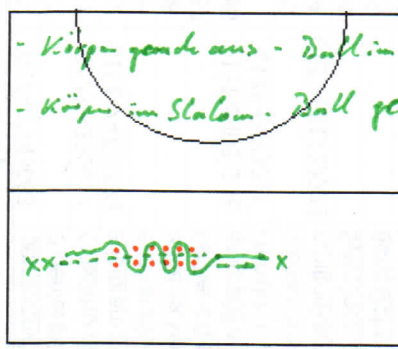 - Körper gerade aus - Ball im
- Körper im Slalom - Ball ge
xx x